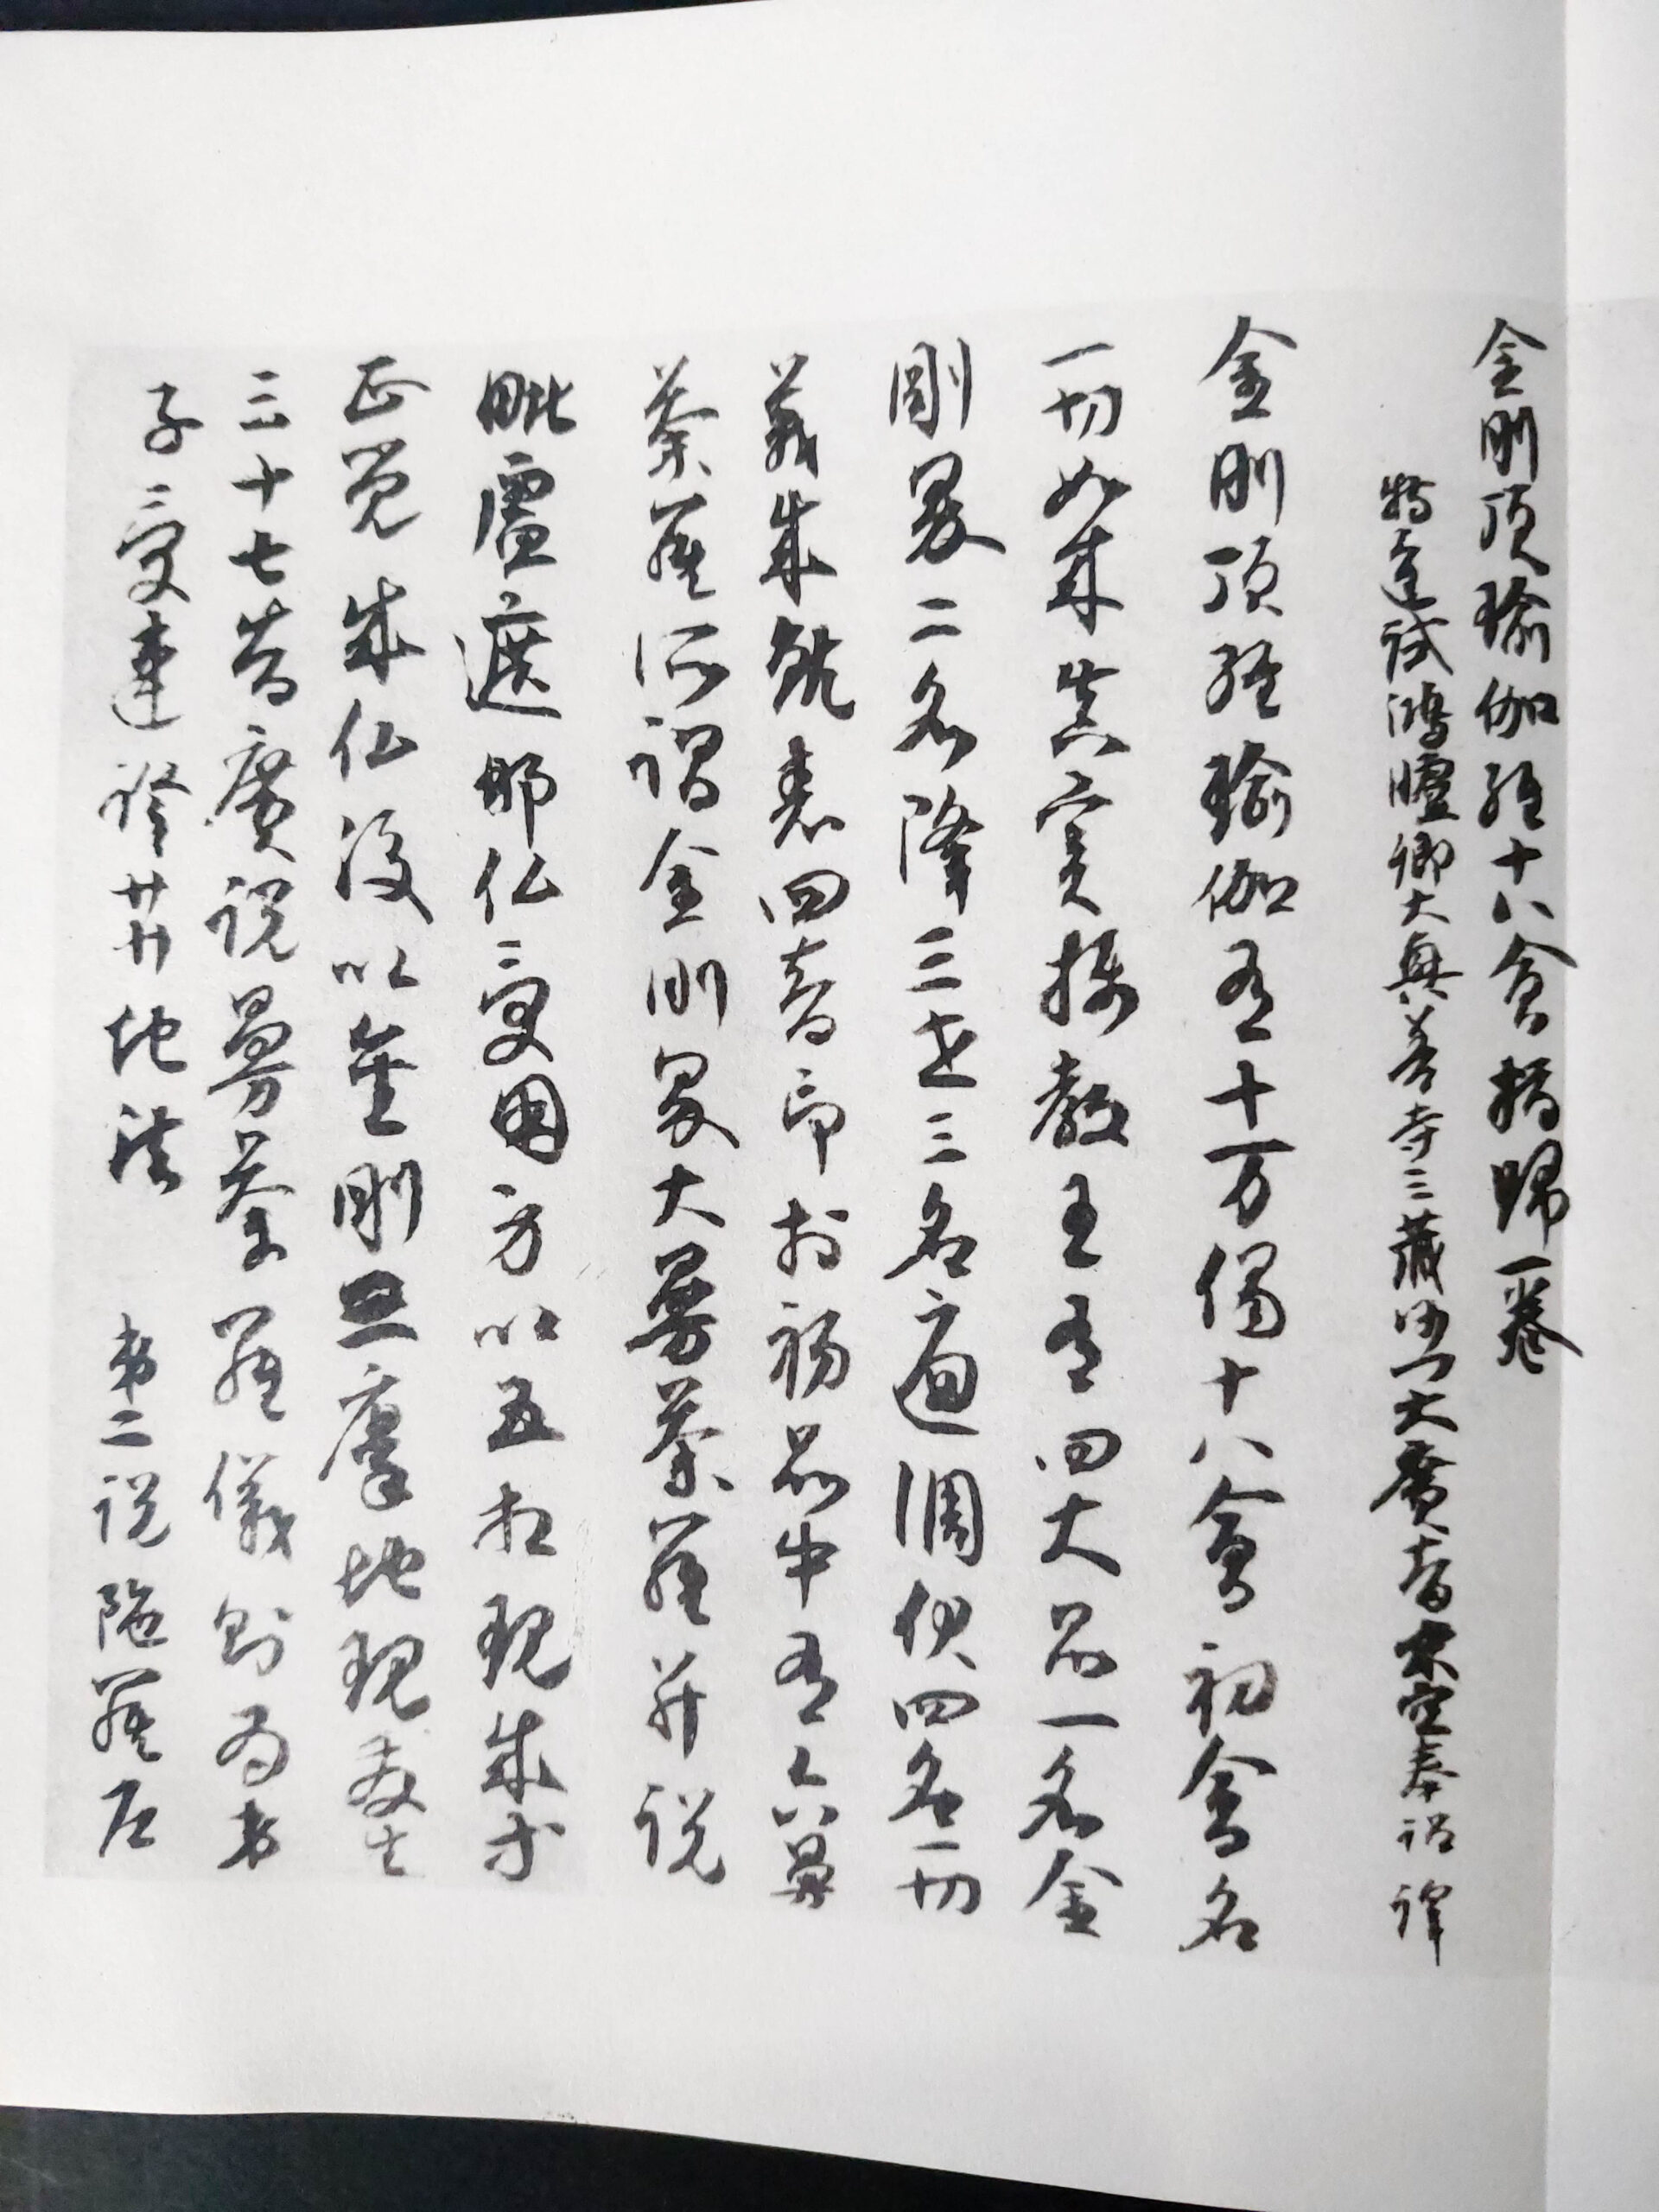 金剛頂瑜伽經十八會指歸一卷
特進試鴻臚卿大興善寺三藏沙門大廣智不空奉詔譯
金剛頂經瑜伽有十万偈十八會初會名
一切如来真實攝教王有四大品一名金
剛界二名降三世三名遍調伏四名一切
義成就表四智印於初品中有六曼
荼羅所謂金剛界大曼荼羅并説
毗盧遮那仏受用身以五相現成等
正覺成仏後以金剛三摩地現發生
三十七智廣説曼荼羅儀則為弟
子受速證菩薩地法 第二説陁羅尼